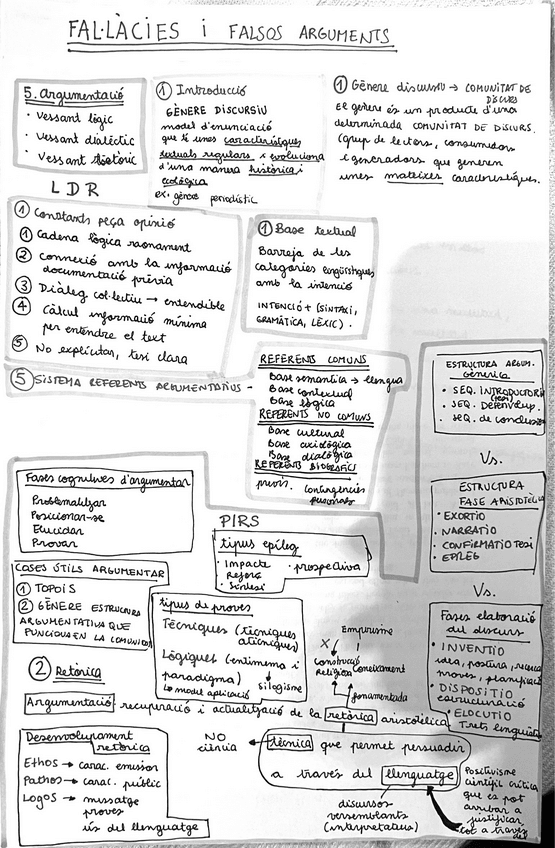 FAL·LÀCIES i FALSOS ARGUMENTS
5. argumentació
· Vessant lògic
· Vessant dialèctic
· Vessant retòric
LDR
① Introducció
GÈNERE DISCURSIU
model d'enunciació
que té unes característiques
textuals regulars i evoluciona
d'una manera històrica i
ecològica
ex: gènere periodístic
① Gènere discursiu → COMUNITAT DE
DISCURS
El gènere és un producte d'una
determinada COMUNITAT DE DISCURS.
(grup de lectors, consumidors
i generadors que generen
unes mateixes característiques.
① Constants peça opinió
① Cadena lògica raonament
② connexió amb la informació
documentació prèvia
③ Diàleg col·lectiu → entendible
④ Càlcul informació mínima
per entendre el text
⑤ No explícitar, tesi clara
① Base textual
Barreja de les
categories lingüístiques
amb la intenció
INTENCIÓ + (SINTAXI,
GRAMÀTICA, LÈXIC).
⑤ SISTEMA REFERENTS ARGUMENTATIUS -
REFERENTS COMUNS
Base semàntica → llengua
Base contextual
Base lògica
REFERENTS NO COMUNS
Base cultural
Base axiològica
Base dialògica
REFERENTS BIOGRÀFICS
previs. contingències
personals
ESTRUCTURA ARGUM.
Genèrica
· SEQ. INTRODUCTORIA
(tesi)
· SEQ. Desenvolup.
· seq. de conclusió
Vs.
ESTRUCTURA
FASE ARISTOTÈLICA
· EXORTIO
· NARRATIO
· CONFIRMATIO TESI
· EPÍLEG
Vs.
Fases elaboració
del discurs
· INVENTIO
idea, postura, recerca
proves, planificació
· DISPOSITIO
estructuració
· ELOCUTIO
Trets lingüístics
Fases cognitives d'argumentar
Problematitzar
Posicionar-se
Elucidar
Provar
PIRS
tipus epíleg
· Impacte
· Reforç
· Síntesi
· prospectiva
COSES ÚTILS ARGUMENTAR
① TOPOIS
② GÈNERE ESTRUCTURA
ARGUMENTATIVA QUE
FUNCIONA EN LA COMUNITAT
tipus de proves
Tècniques (tècniques
atècniques)
Lògiques (entimema i
paradigma) silogisme
↳ model aplicació
Empirisme
X
Construcció
Religiosa
Coneixement
fonamentada
② Retòrica
Argumentació recuperació i actualització de la retòrica aristotèlica
Desenvolupament
retòrica
Ethos → caràc. emissor
Pathos → caràc. públic
Logos → missatge
proves
ús del llenguatge
NO
ciència
← tècnica que permet persuadir
a través del llenguatge
discursos
versemblants
(interpretatius)
Positivisme
científic critica
que es pot
arribar a
justificar
tot a través
del